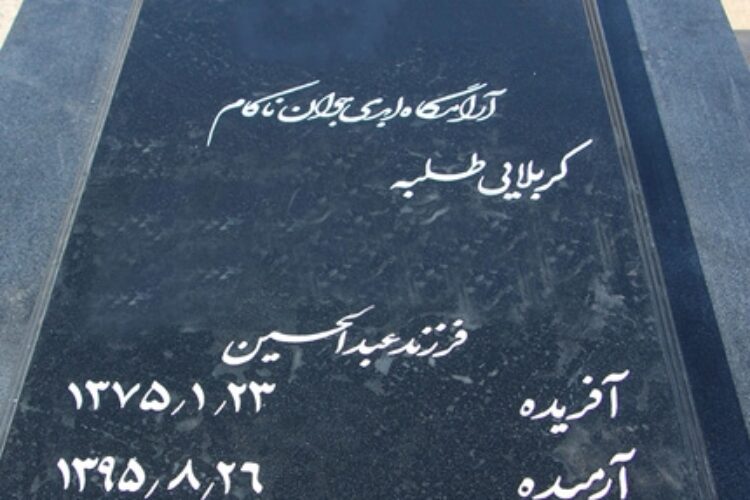 آرامگاه ابدی جوان ناکام
کربلایی طلبه
فرزند عبدالحسین
آفریده ۱۳۷۵/۱/۲۳
آرمیده ۱۳۹۵/۸/۲۶